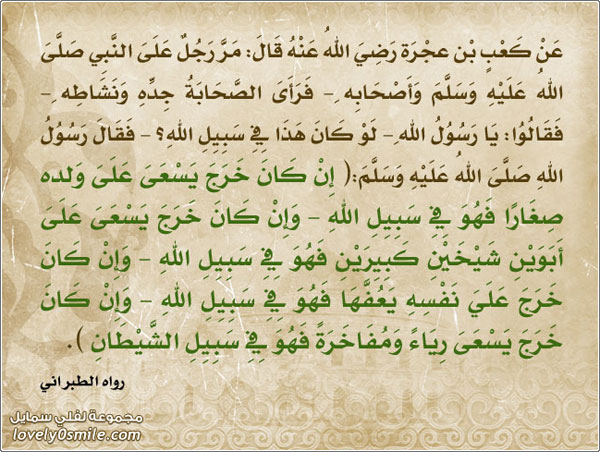 عَنْ كَعْبٍ بْن عجْرَة رَضِيَ اللهُ عَنْهُ قَالَ: مَرَّ رَجُلٌ عَلَى النَّبِي صَلَّىَ
اللهُ عَلَيْهِ وَسَلَّمَ وَأَصْحَابِهِ - فَرَأَى الصَّحَابَةُ جِدِّهِ وَنَشَاطِهِ -
فَقَالُوُا: يَا رَسُوُلُ اللهِ - لَوْ كَانَ هَذَا فِيْ سَبِيلِ اللهِ؟ - فَقَالَ رَسُوُلُ
اللهِ صَلَّىَ اللهُ عَلَيْهِ وَسَلَّمَ:( إِنْ كَانَ خَرَجَ يَسْعَى عَلَىَ وَلَده
صِغارًا فَهُوَ فِيْ سَبِيلِ اللهِ - وَإِنْ كَانَ خَرَجَ يَسْعَى عَلَىَ
أَبَوَيْنِ شَيْخَيْنِ كَبِيرَيْنِ فَهُوَ فِيْ سَبِيلِ اللهِ - وَإِنْ كَانَ
خَرَجَ عَلَي نَفْسِهِ يَعُفّهَا فَهُوَ فِيْ سَبِيلِ اللهِ - وَإِنْ كَانَ
خَرَجَ يَسْعَى رِيَاءً وَمُفَاخَرَةً فَهُوَ فِيْ سَبِيِلِ الشَّيْطَانِ ).
رواه الطبراني
مجموعة لفلي سمايل
lovely0smile.com